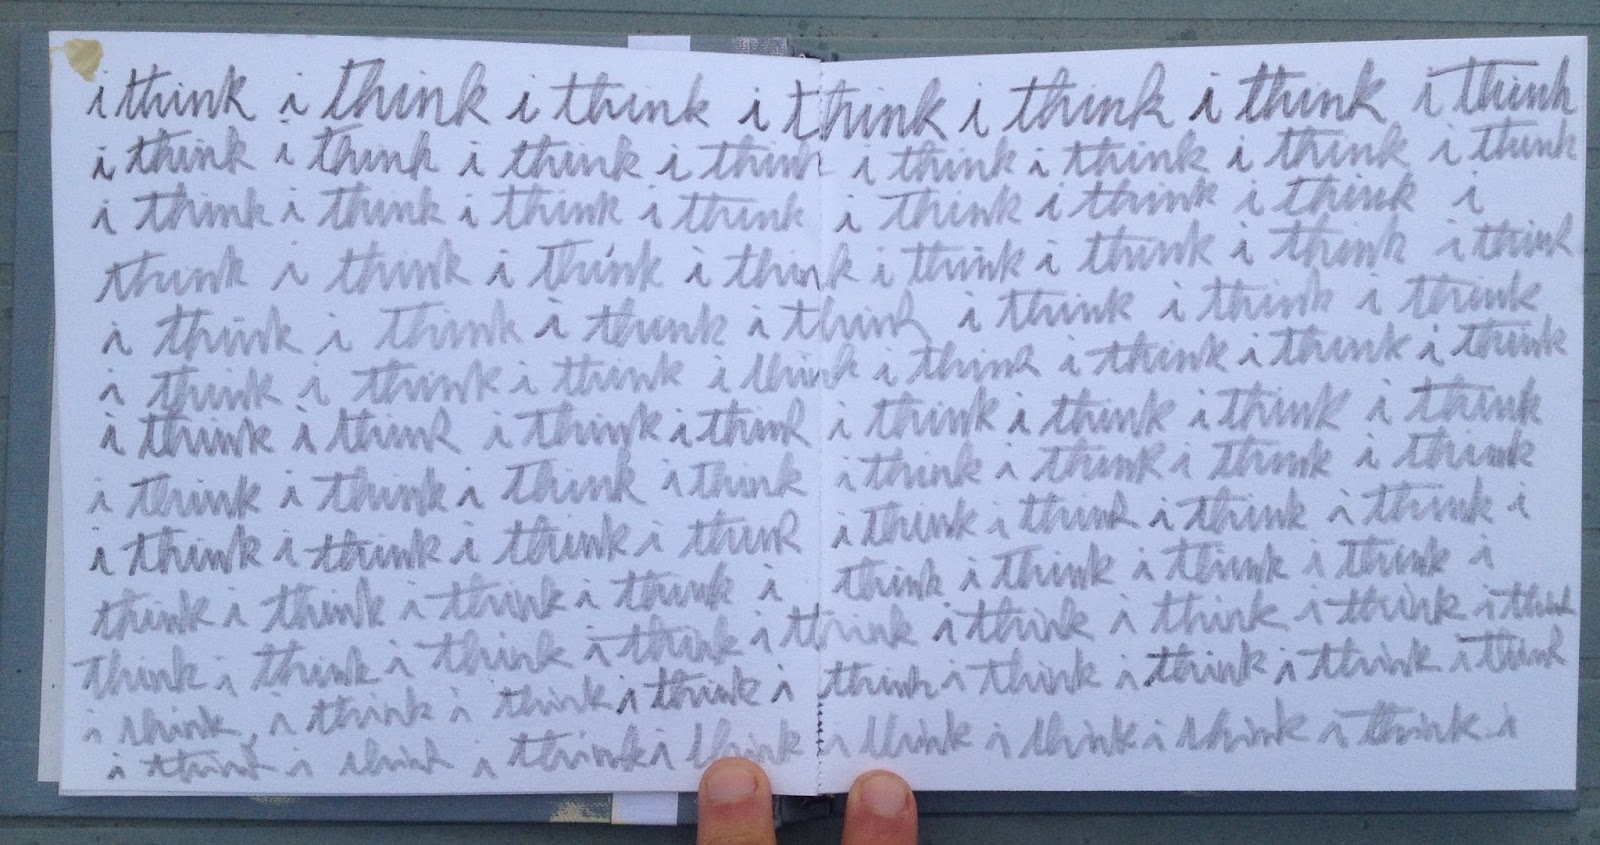 i think i think i think i think i think i think i think
i think i think i think i think i think i think i think i think
i think i think i think i think i think i think i think i
think i think i think i think i think i think i think i think
i think i think i think i think i think i think i think
i think i think i think i think i think i think i think i think
i think i think i think i think i think i think i think i think
i think i think i think i think i think i think i think i think
i think i think i think i think i think i think i think i think i
think i think i think i think i think i think i think i think i
think i think i think i think i think i think i think i think i think
i think i think i think i think i think i think i think i think i think
i think i think i think i think i think i think i think i think i